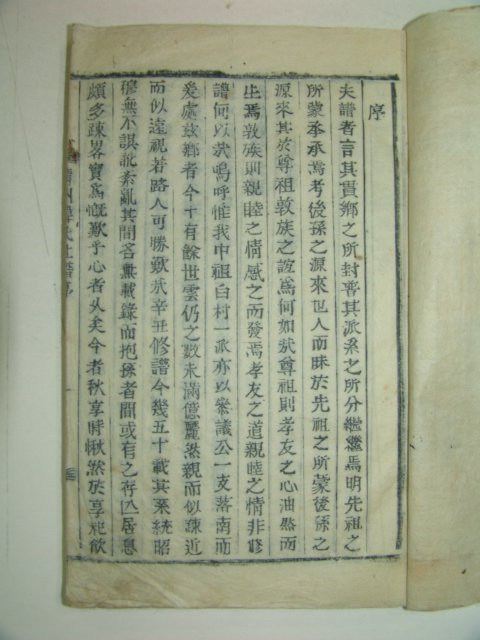 序
夫譜者言其貫鄉之所封著其派系之所分繼繼焉明先祖之
所蒙承承焉考後孫之源來世人而昧於先祖之所蒙後孫之
源來其於尊祖敦族之誼爲何如㢤尊祖則孝友之心油然而
生焉敦族則親睦之情感之而發焉孝友之道親睦之情非修
譜何以㢤嗚呼惟我中祖白村一派亦以參議公一支落南而
爰處玆鄉者今十有餘世雲仍之數未滿億麗然親而似疎近
而似遠視若路人可勝歎㢤辛丑修譜今幾五十載其系統昭
穆無不誤紕紊亂其間名無載錄而抱孫者間或有之存亡居息
頗多疎畧實爲慨歎乎心者久矣今者秋享時愀然於享祀飮